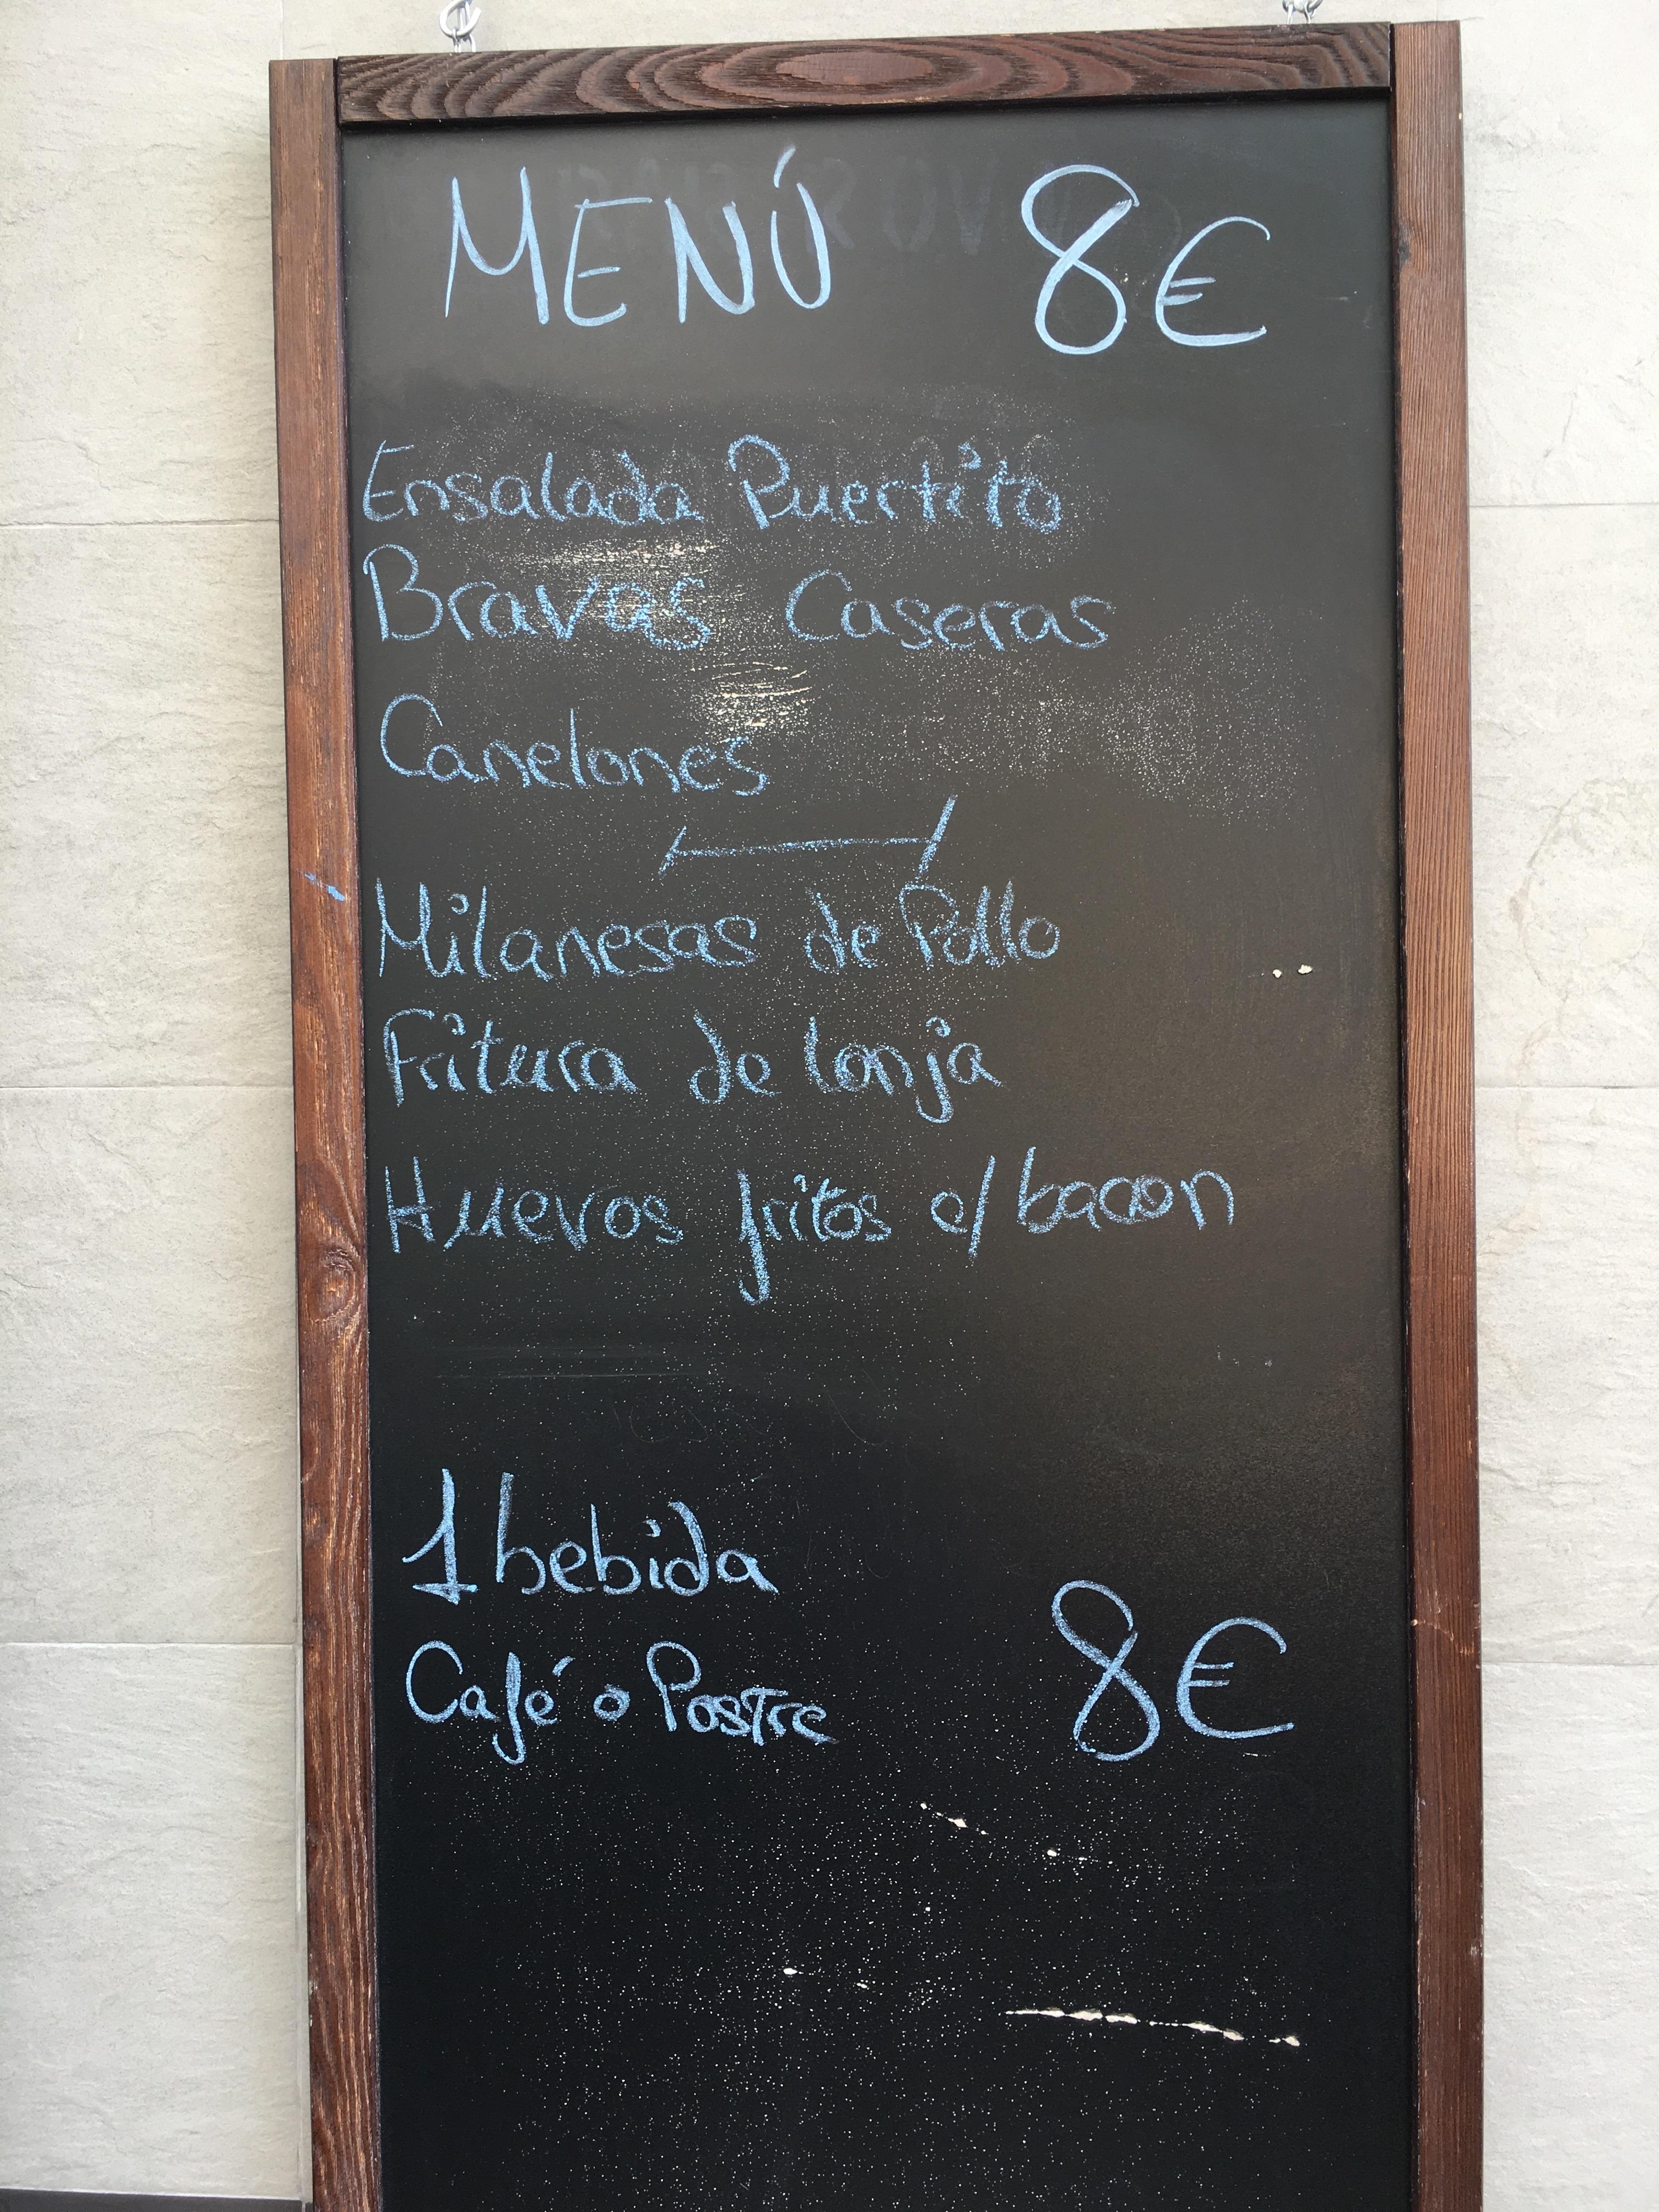 MENÚ 8€
Ensalada Puertito
Bravas Caseras
Canelones
Milanesas de Pollo
Fritura de lonja
Huevos fritos c/ bacon
1 bebida
Café o Postre 8€